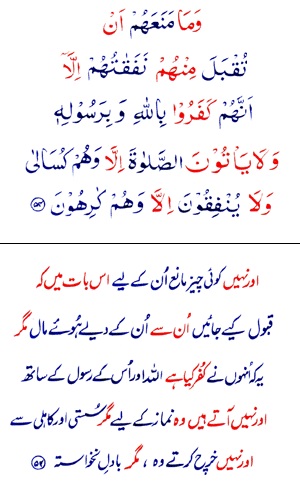 وَمَا مَنَعَهُمْ اَنْ
تُقْبَلَ مِنْهُمْ نَفَقٰتُهُمْ اِلَّاۤ
اَنَّهُمْ كَفَرُوْا بِاللّٰهِ وَ بِرَسُوْلِهٖ
وَلَا يَاْتُوْنَ الصَّلٰوةَ اِلَّا وَهُمْ كُسَالٰى
وَلَا يُنْفِقُوْنَ اِلَّا وَهُمْ كٰرِهُوْنَ ۵۴
اور نہیں کوئی چیز مانع اُن کے لیے اس بات میں کہ
قبول کیے جائیں اُن سے اُن کے دیے ہُوئے مال مگر
یہ کہ اُنہوں نے کُفر کیا ہے اللہ اور اُس کے رسول کے ساتھ
اور نہیں آتے ہیں وہ نماز کے لیے مگر سُستی اور کاہلی سے
اور نہیں خرچ کرتے وہ ، مگر بادلِ نخواستہ ۵۴